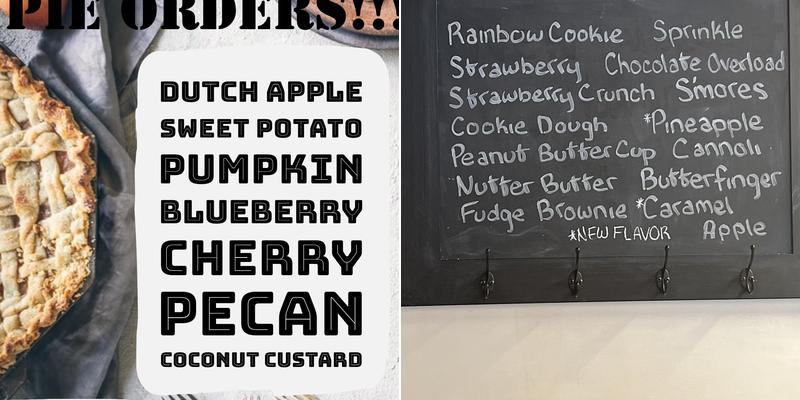 PIE ORDERS!!!
DUTCH APPLE
SWEET POTATO
PUMPKIN
BLUEBERRY
CHERRY
PECAN
COCONUT CUSTARD
Rainbow Cookie Sprinkle
Strawberry Chocolate Overload
Strawberry Crunch S'mores
Cookie Dough *Pineapple
Peanut Butter Cup Cannoli
Nutter Butter Butterfinger
Fudge Brownie *Caramel
*NEW FLAVOR Apple